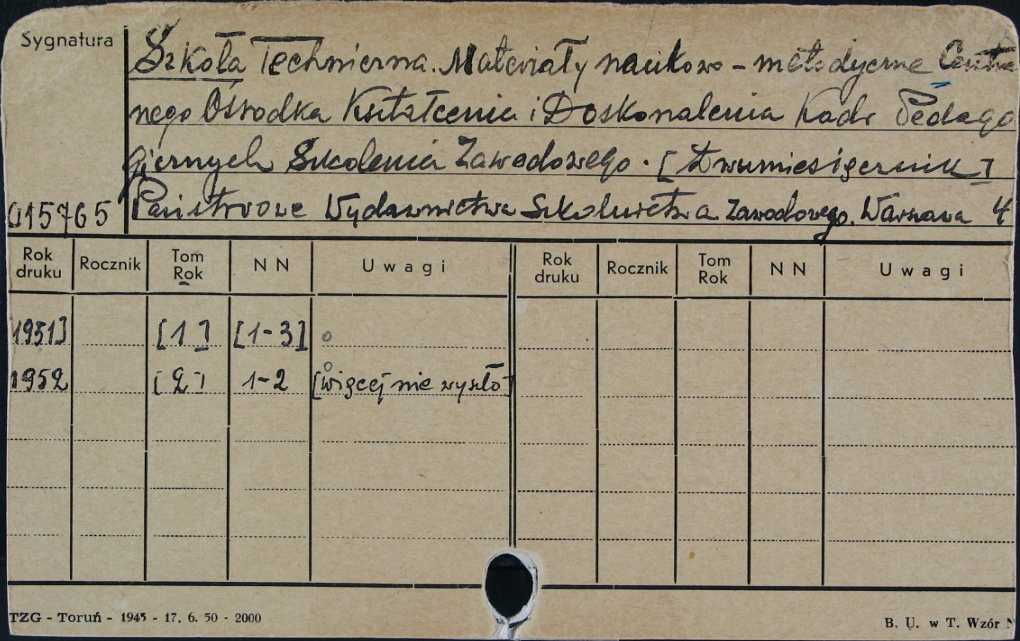 Sygnatura
Szkoła Techniczna. Materiały naukowo - metodyczne Centra
nego Ośrodka Kształcenia i Doskonalenia Kadr Pedago
gicznych Szkolenia Zawodowego. [Dwumiesięcznik]
015765 Państwowe Wydawnictwa Szkolnictwa Zawodowego. Warszawa 4
Rok druku Rocznik Tom Rok NN Uwagi Rok druku Rocznik Tom Rok NN Uwagi
1951] [1] [1-3]
1952 [2] 1-2 [więcej nie wyszło]
TZG - Toruń - 1945 - 17. 6. 50 - 2000 B. U. w T. Wzór